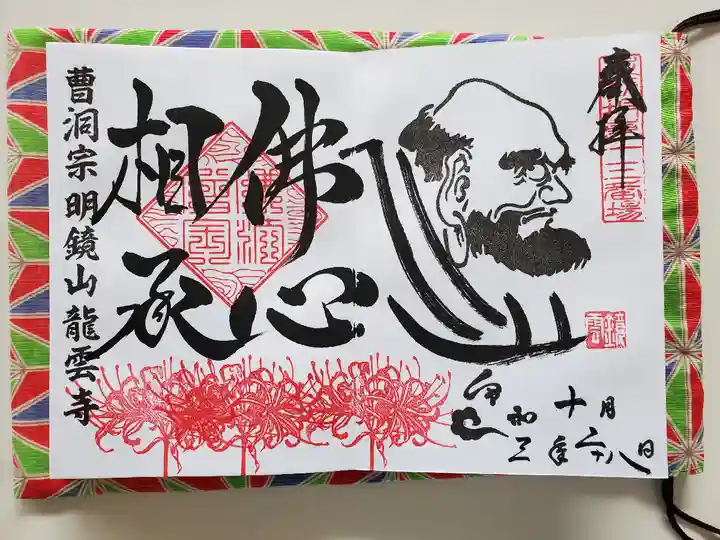 奉拝
佛心
相承
曹洞宗明鏡山龍雲寺
令和三年
十月二十八日